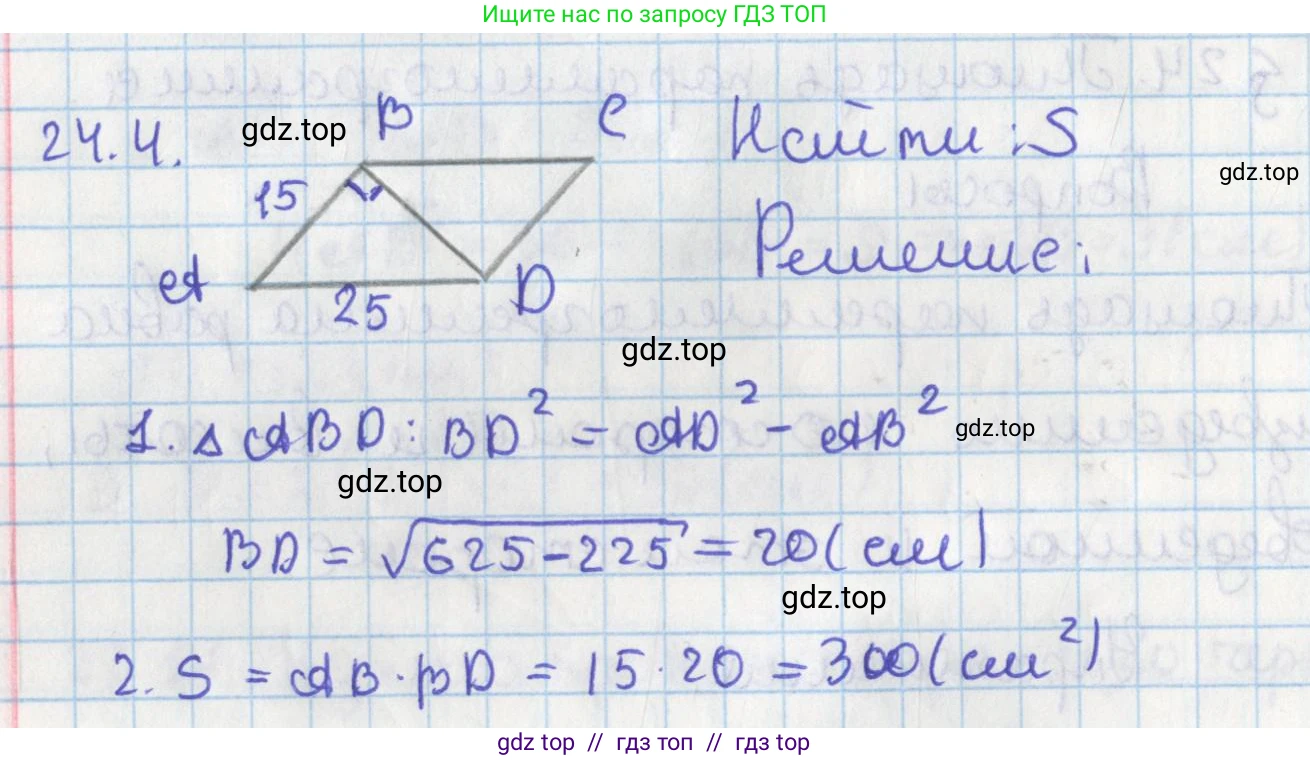 Ищите нас по запросу ГДЗ ТОП
24.4.
gdz.top
B
C
Найти: S
gdz.top
15
Решение:
A
25
D
gdz.top
1. △ ABD: BD² = AD² - AB²
gdz.top
gdz.top
BD = √625-225 = 20(см)
gdz.top
2. S = AB · BD = 15 · 20 = 300(см²)
gdz top // гдз топ // gdz top